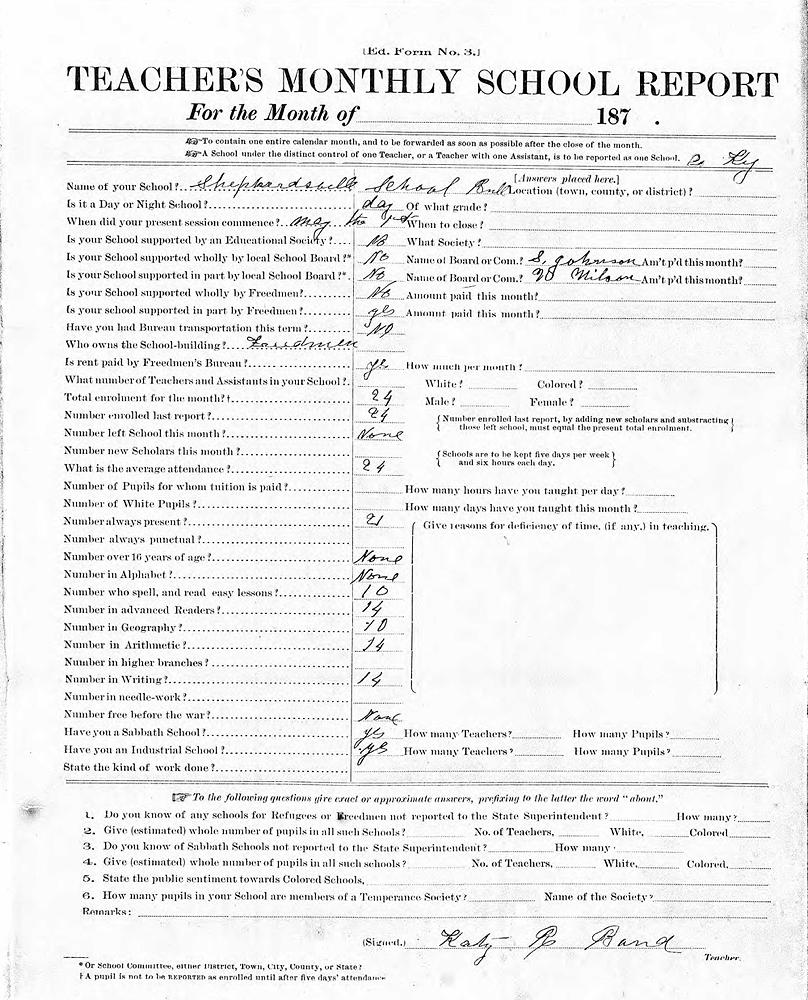 [Ed. Form No. 3.]
TEACHER'S MONTHLY SCHOOL REPORT
For the Month of 187 .
To contain one entire calendar month, and to be forwarded as soon as possible after the close of the month.
A School under the distinct control of one Teacher, or a Teacher with one Assistant, is to be reported as one School. Co Ky
[Answers placed here.]
Name of your School? Shephardsvill School Bull Location (town, county, or district) ?
Is it a Day or Night School? day Of what grade?
When did your present session commence? may the 1st When to close?
Is your School supported by an Educational Society? No What Society?
Is your School supported wholly by local School Board?* No Name of Board or Com.? S. Johnson Am't p'd this month?
Is your School supported in part by local School Board?* No Name of Board or Com.? W Wilson Am't p'd this month?
Is your School supported wholly by Freedmen? No Amount paid this month?
Is your school supported in part by Freedmen? yes Amount paid this month?
Have you had Bureau transportation this term? No
Who owns the School-building? Freedmen
Is rent paid by Freedmen's Bureau? yes How much per month?
What number of Teachers and Assistants in your School? White? Colored?
Total enrolment for the month?† 24 Male? Female?
Number enrolled last report? 24 {Number enrolled last report, by adding new scholars and substracting}
Number left School this month? None {those left school, must equal the present total enrolment.}
Number new Scholars this month? {Schools are to be kept five days per week}
What is the average attendance? 24 {and six hours each day.}
Number of Pupils for whom tuition is paid? How many hours have you taught per day?
Number of White Pupils? How many days have you taught this month?
Number always present? 21 Give reasons for deficiency of time, (if any,) in teaching.
Number always punctual?
Number over 16 years of age? None
Number in Alphabet? None
Number who spell, and read easy lessons? 10
Number in advanced Readers? 14
Number in Geography? 10
Number in Arithmetic? 14
Number in higher branches?
Number in Writing? 14
Number in needle-work?
Number free before the war? None
Have you a Sabbath School? yes How many Teachers? How many Pupils?
Have you an Industrial School? yes How many Teachers? How many Pupils?
State the kind of work done?
To the following questions give exact or approximate answers, prefixing to the latter the word "about."
1. Do you know of any schools for Refugees or Freedmen not reported to the State Superintendent? How many?
2. Give (estimated) whole number of pupils in all such Schools? No. of Teachers, White, Colored
3. Do you know of Sabbath Schools not reported to the State Superintendent? How many
4. Give (estimated) whole number of pupils in all such schools? No. of Teachers, White, Colored,
5. State the public sentiment towards Colored Schools,
6. How many pupils in your School are members of a Temperance Society? Name of the Society?
Remarks:
(Signed,) Katy R Band
Teacher.
* Or School Committee, either District, Town, City, County, or State?
† A pupil is not to be REPORTED as enrolled until after five days' attendance